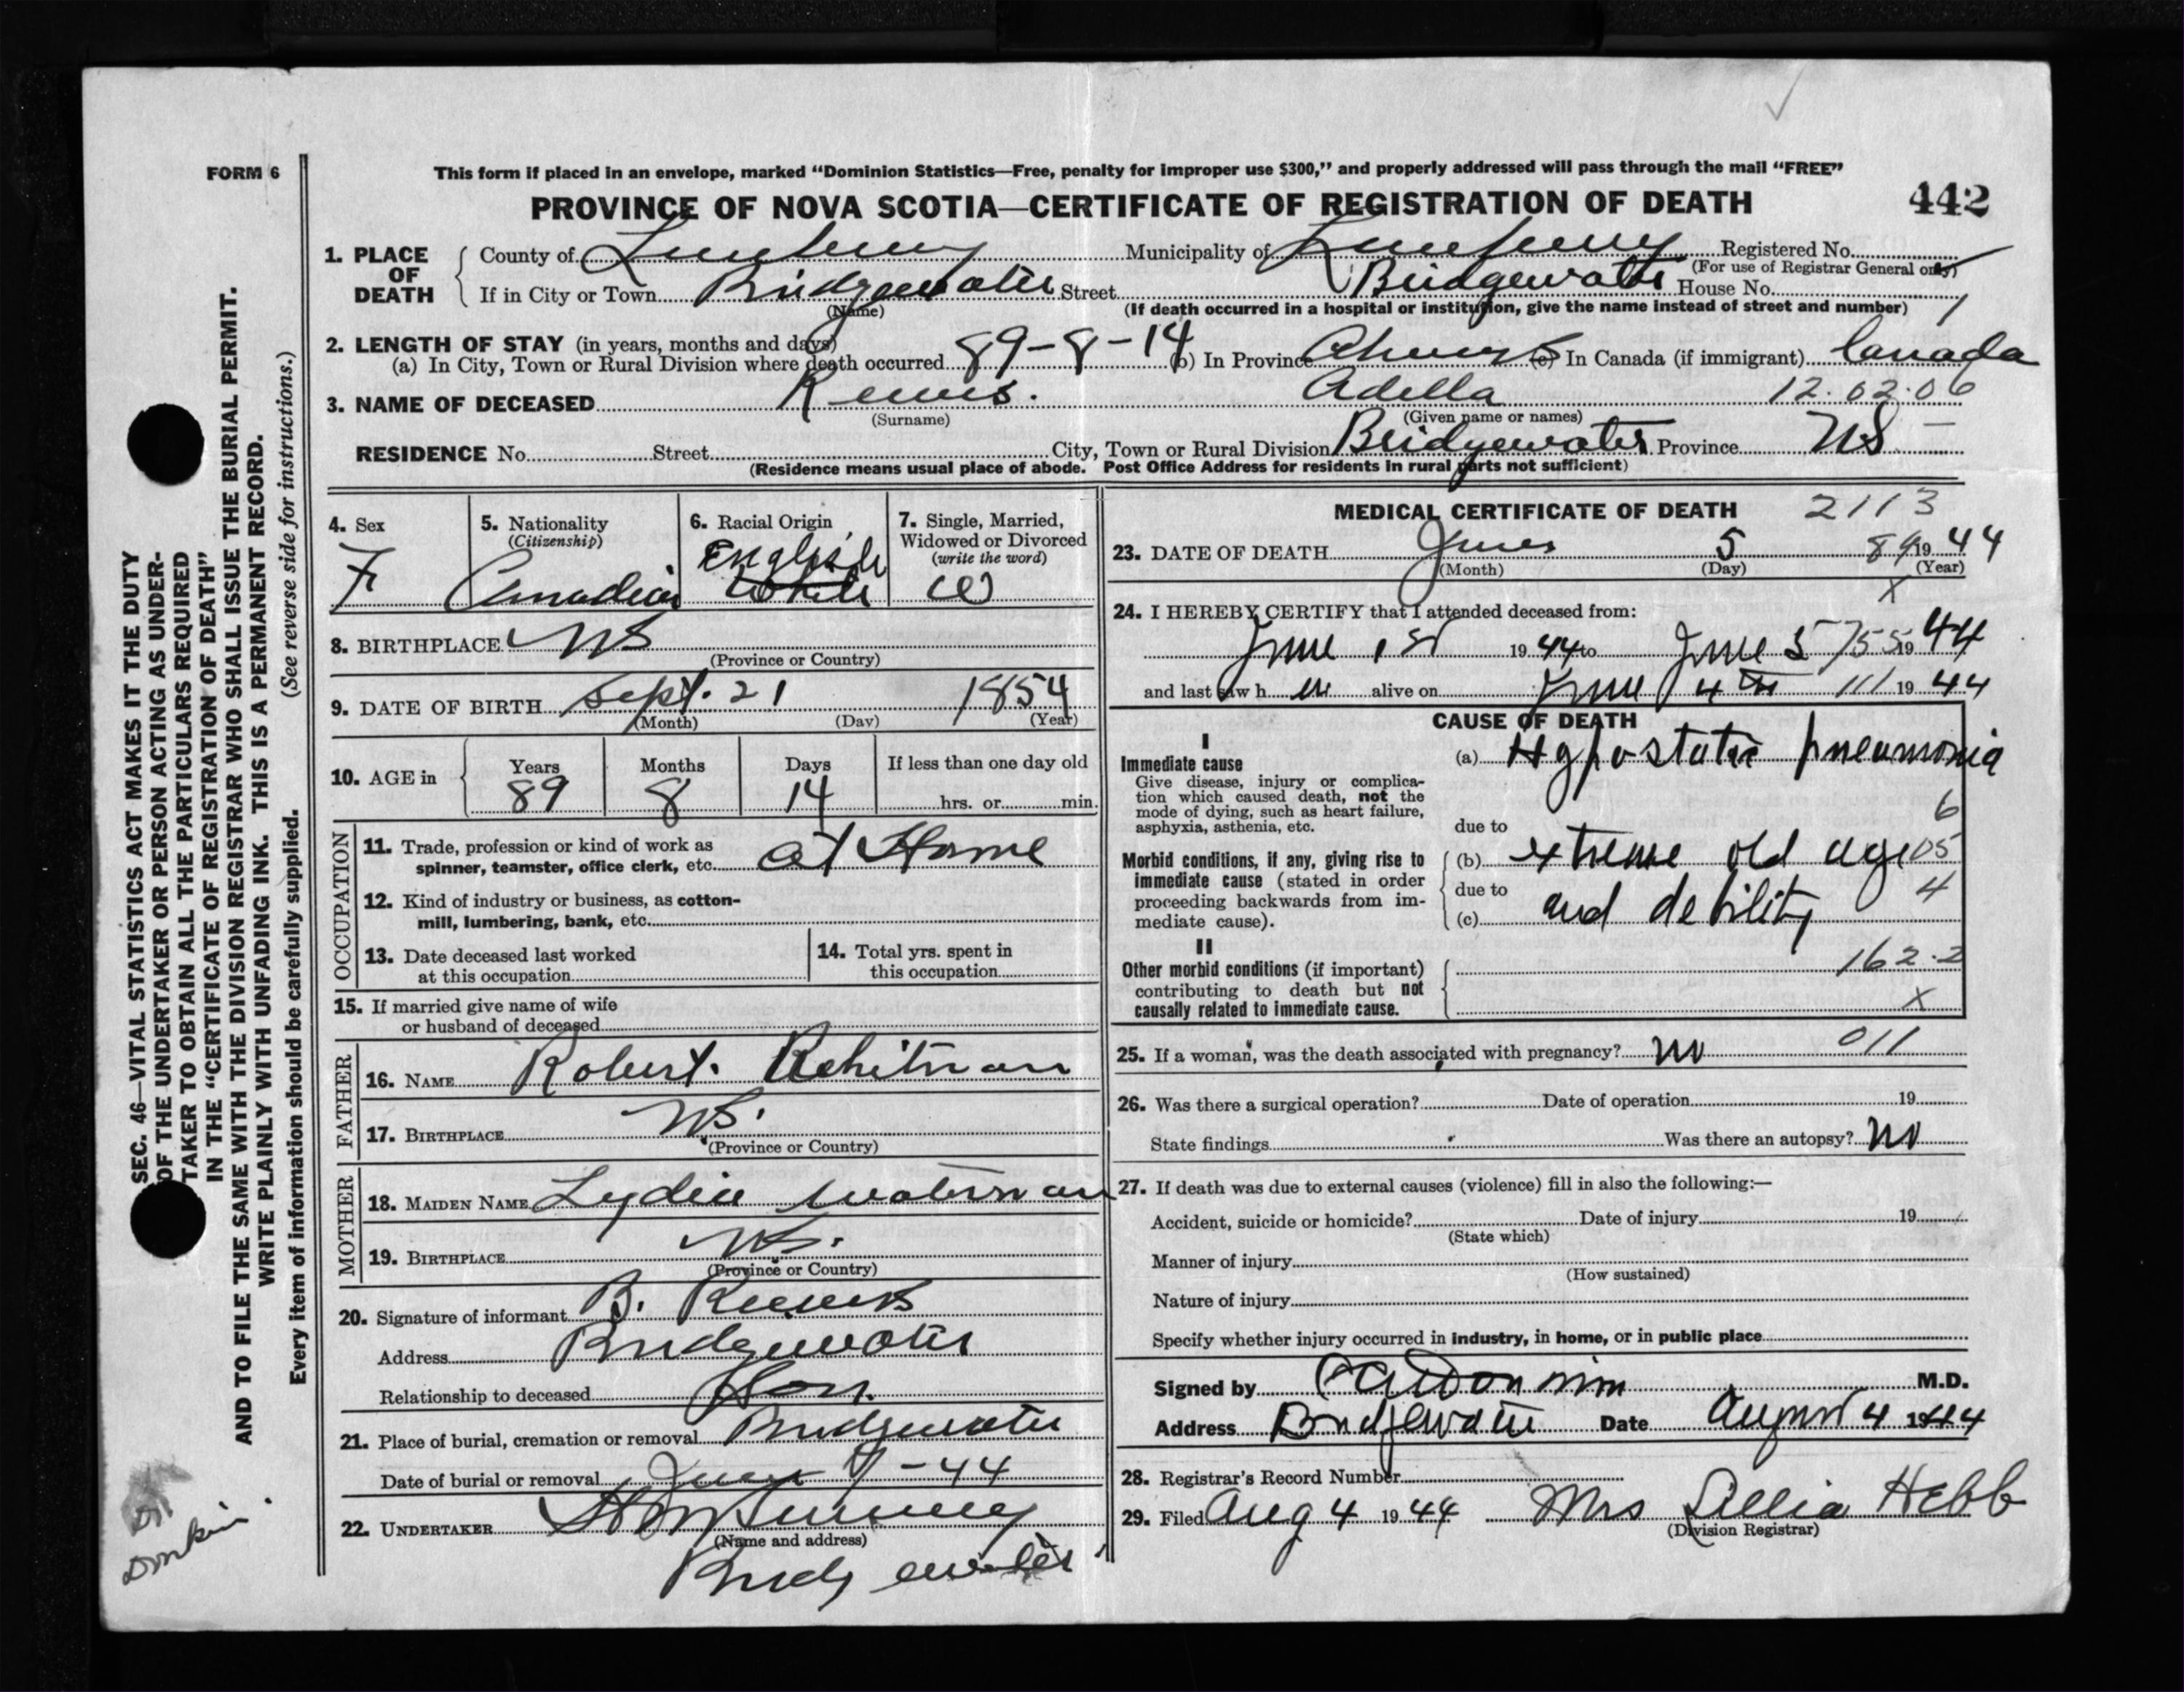 FORM 6
This form if placed in an envelope, marked “Dominion Statistics—Free, penalty for improper use $300,” and properly addressed will pass through the mail “FREE”
PROVINCE OF NOVA SCOTIA—CERTIFICATE OF REGISTRATION OF DEATH 442
1. PLACE OF DEATH County of Lunenburg Municipality of Lunenburg Registered No.
(For use of Registrar General only)
If in City or Town Bridgewater Street Bridgewater House No.
(Name) (If death occurred in a hospital or institution, give the name instead of street and number) 1
2. LENGTH OF STAY (in years, months and days)
(a) In City, Town or Rural Division where death occurred 89-8-14 (b) In Province Always (c) In Canada (if immigrant) Canada
3. NAME OF DECEASED Adella 12.02.06
(Surname) (Given name or names)
RESIDENCE No. Street City, Town or Rural Division Bridgewater Province NS
(Residence means usual place of abode. Post Office Address for residents in rural parts not sufficient)
4. Sex
F
5. Nationality
(Citizenship)
Canadian
6. Racial Origin
English
White
7. Single, Married,
Widowed or Divorced
(write the word)
W
8. BIRTHPLACE NS
(Province or Country)
9. DATE OF BIRTH Sept. 21 1854
(Month) (Day) (Year)
10. AGE in Years Months Days If less than one day old
89 8 14 hrs. or min.
OCCUPATION
11. Trade, profession or kind of work as
spinner, teamster, office clerk, etc. at Home
12. Kind of industry or business, as cotton-
mill, lumbering, bank, etc.
13. Date deceased last worked
at this occupation
14. Total yrs. spent in
this occupation
15. If married give name of wife
or husband of deceased
FATHER
16. NAME Robert Whitman
17. BIRTHPLACE NS.
(Province or Country)
MOTHER
18. MAIDEN NAME Lydia Waterman
19. BIRTHPLACE NS.
(Province or Country)
20. Signature of informant B.
Address Bridgewater
Relationship to deceased Son.
21. Place of burial, cremation or removal Bridgewater
Date of burial or removal June 7-44
22. UNDERTAKER
(Name and address)
Bridgewater
MEDICAL CERTIFICATE OF DEATH 2113
23. DATE OF DEATH June 5 89 19 44
(Month) (Day) (Year)
x
24. I HEREBY CERTIFY that I attended deceased from:
June 1st 19 44 to June 5 755 19 44
and last saw h er alive on June 4th 111 19 44
CAUSE OF DEATH
I
Immediate cause
Give disease, injury or complica-
tion which caused death, not the
mode of dying, such as heart failure,
asphyxia, asthenia, etc.
(a) Hypostatic pneumonia
6
due to
Morbid conditions, if any, giving rise to
immediate cause (stated in order
proceeding backwards from im-
mediate cause).
(b) extreme old age 05
due to 4
(c) and debility
II
Other morbid conditions (if important)
contributing to death but not
causally related to immediate cause.
162.2
x
25. If a woman, was the death associated with pregnancy? no 011
26. Was there a surgical operation? Date of operation 19
State findings Was there an autopsy? no
27. If death was due to external causes (violence) fill in also the following:—
Accident, suicide or homicide? Date of injury 19
(State which)
Manner of injury
(How sustained)
Nature of injury
Specify whether injury occurred in industry, in home, or in public place
Signed by M.D.
Address Bridgewater Date August 4 1944
28. Registrar's Record Number
29. Filed Aug 4 19 44 Mrs Lillia Hebb
(Division Registrar)
SEC. 46—VITAL STATISTICS ACT MAKES IT THE DUTY
OF THE UNDERTAKER OR PERSON ACTING AS UNDER-
TAKER TO OBTAIN ALL THE PARTICULARS REQUIRED
IN THE “CERTIFICATE OF REGISTRATION OF DEATH”
AND TO FILE THE SAME WITH THE DIVISION REGISTRAR WHO SHALL ISSUE THE BURIAL PERMIT.
WRITE PLAINLY WITH UNFADING INK. THIS IS A PERMANENT RECORD.
Every item of information should be carefully supplied. (See reverse side for instructions.)
Dr